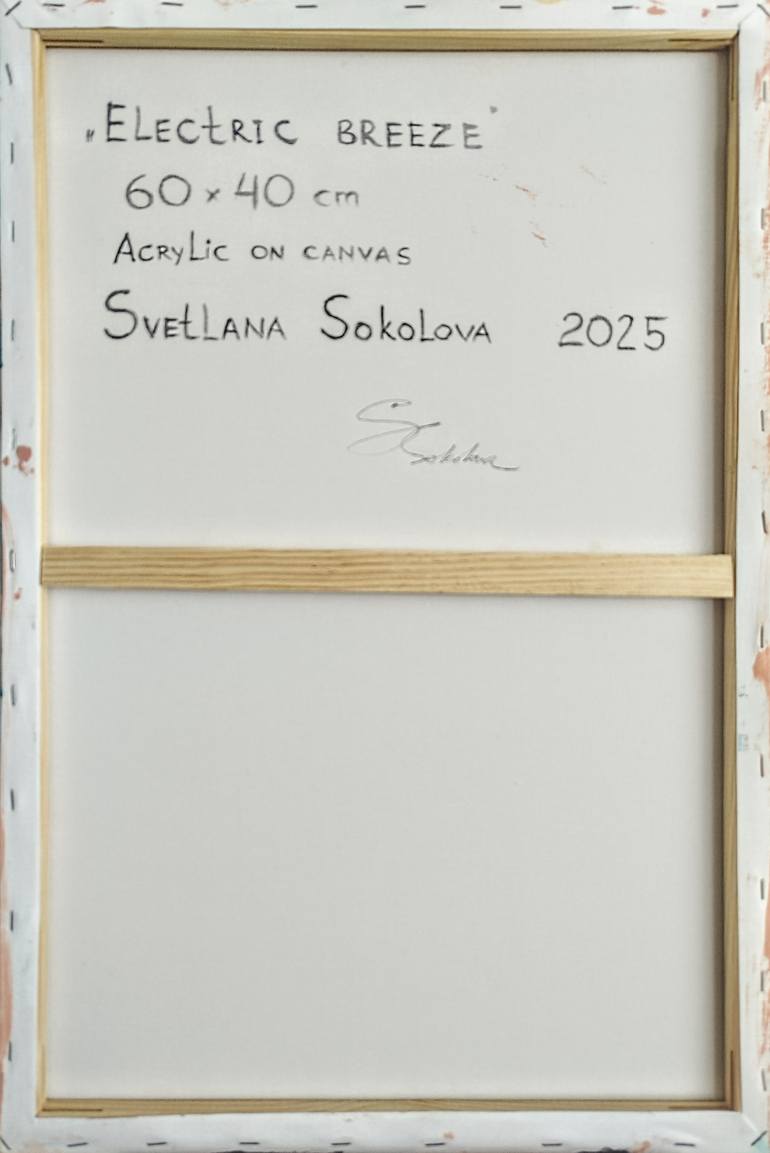 „Electric Breeze"
60 x 40 cm
Acrylic on canvas
Svetlana Sokolova 2025
S Sokolova